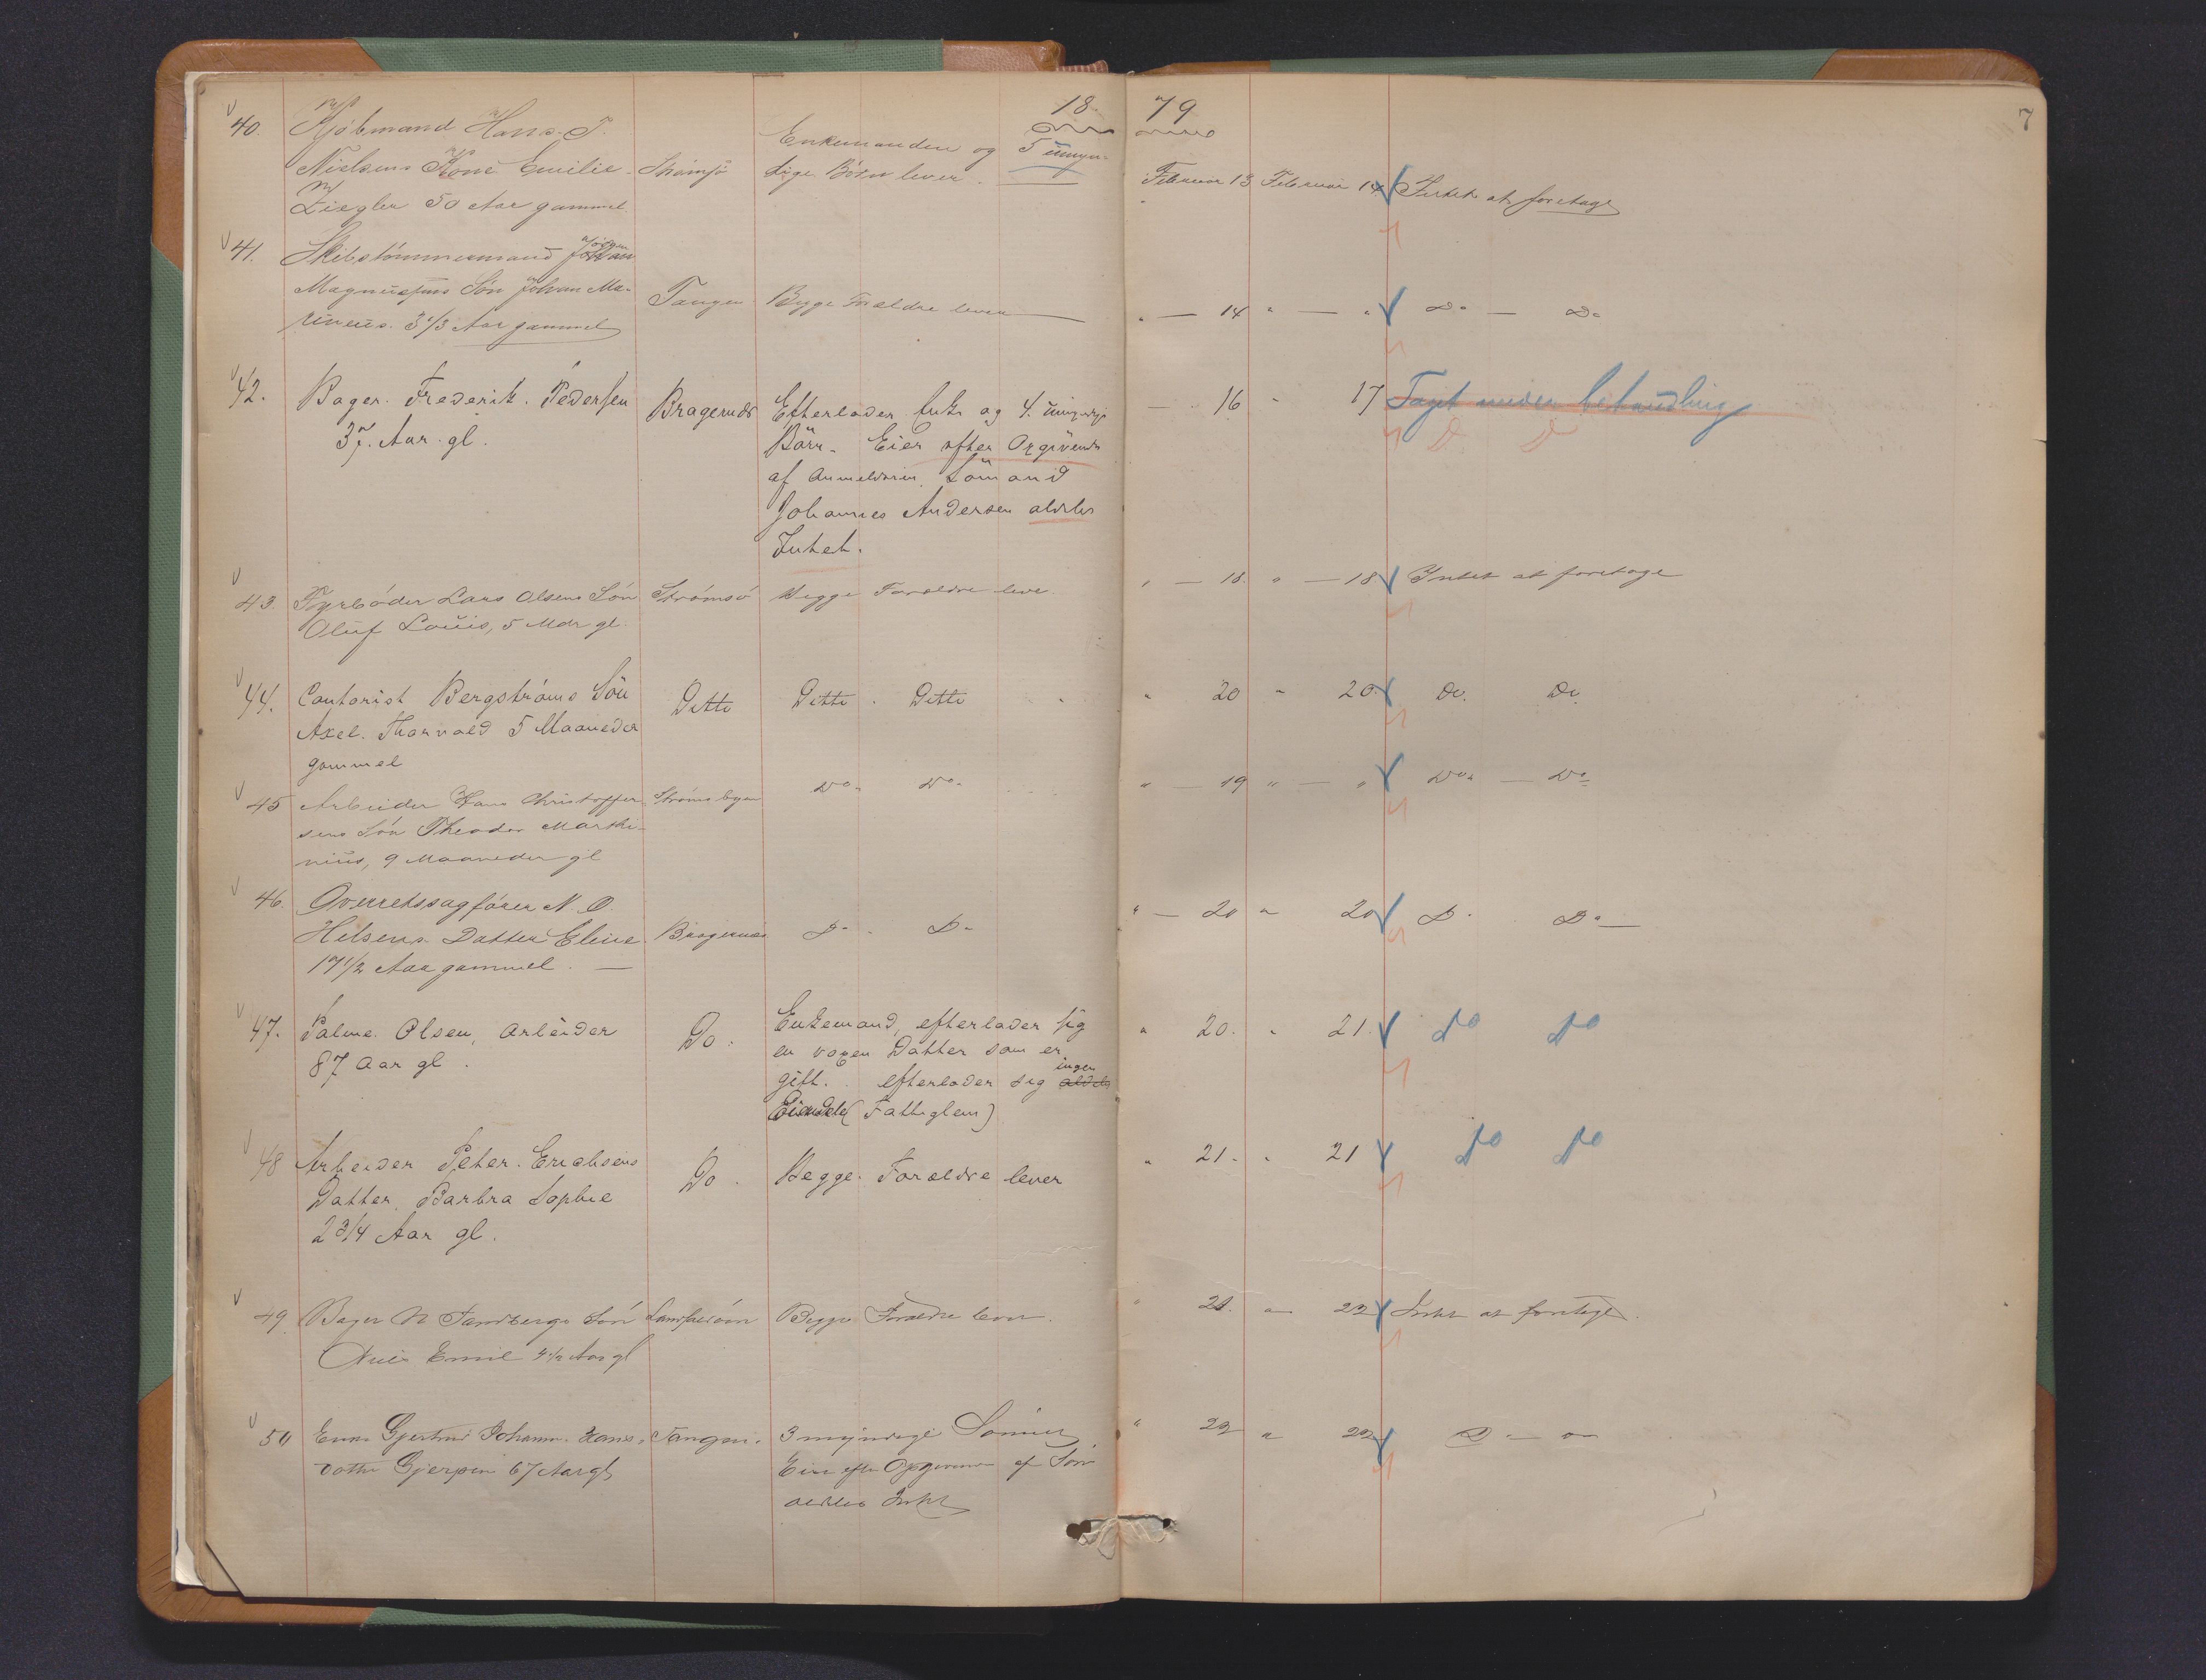 18 79
7
40. Kjöbmand Hans. T. Enkemanden og 5 umyn-
Nielsens Kone Emilie Strömsö dige Börn lever. Februar 13 Februar 14 Intet at foretage
Ziegler 50 Aar gammel
41. Skibstömmermand Jörgen
Magnussens Sön Johan Ma- Tangen Begge Forældre lever " — 14 " — " Do — Do
rineus. 3 1/3 Aar gammel
42. Bager. Frederik. Pedersen Bragernæs Efterlader Enke og 4. umyndige — 16 " 17 Taget under behandling
37. Aar. gl. Börn. Eier efter Opgivende Do Do
af Anmelderen Sömand
Johannes Andersen aldeles
Intet.
43 Fyrböder Lars Olsens Sön Strömsö Begge Forældre leve " — 18. " — 18 Intet at foretage
Oluf Louis, 5 Mdr gl.
44. Contorist Bergströms Sön Ditto Ditto. Ditto " 20 " 20. Do. Do.
Axel. Thorvald 5 Maaneder
gammel
45 Arbeider Hans Christoffer- Strömsbyen Do. Do. " — 19 " — " Do. — Do
sens Sön Theodor Marthi-
nius, 9 Maaneder gl
46. Overretssagförer N. O.
Helsens Datter Eline Bragernæs Do. Do " — 20 " 20 Do. Do —
17 1/2 Aar gammel. —
47. Palme. Olsen, Arbeider Do. Enkemand, efterlader sig " 20. " 21. Do Do
87 Aar gl. en voxen Datter som er
gift. efterlader sig ingen aldeles
Eiendele (Fattiglem)
48 Arbeider Peter. Erichsens Do. Begge. Forældre lever " 21. " 21 Do Do
Datter. Barbra Sophie
2 3/4 Aar gl.
49. Bager N Sandbergs Sön Begge Forældre lever. " 21. " 22 Intet at foretage.
Nils Emil 4 1/2 Aar gl
50 Enke Gjertrud Johanne Hans- Tangen. 3 myndige Sönner " 22 " 22 Do — "
datter Gjerpen 67 Aar gl Eier efter Opgivende af Sön
aldeles Intet